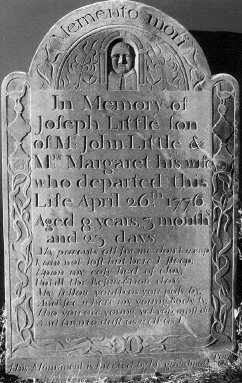 Memento mori
In Memory of
Joseph Little son
of Mr. John Little &
Mrs. Margaret his wife
who departed this
Life April 26th 1776
Aged 8 years, 3 months
and 23 days
My parents all for me don't weep
I am not lost but here I sleep
Upon my cold bed of clay
Untill the Resurection day
My fellow youth as you pass by
And see where my young Body ly
Tho you are young yet you must die
and turn to dust as well as I
This Monument is Erected by